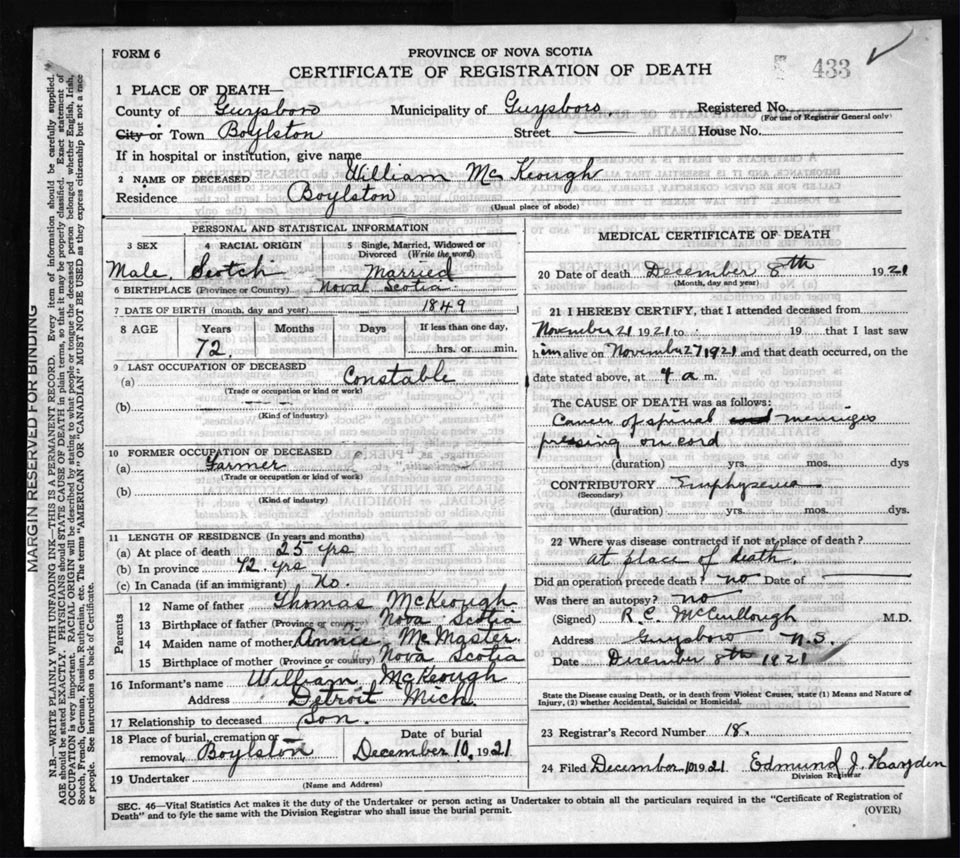 FORM 6
PROVINCE OF NOVA SCOTIA
CERTIFICATE OF REGISTRATION OF DEATH
433
1 PLACE OF DEATH—
County of Guysboro Municipality of Guysboro. Registered No.
(For use of Registrar General only)
City or Town Boylston Street — House No.
If in hospital or institution, give name
2 NAME OF DECEASED William McKeough
Residence Boylston
(Usual place of abode)
PERSONAL AND STATISTICAL INFORMATION
3 SEX 4 RACIAL ORIGIN 5 Single, Married, Widowed or Divorced (Write the word)
Male. Scotch Married
6 BIRTHPLACE (Province or Country) Nova Scotia
7 DATE OF BIRTH (month, day and year) 1849
8 AGE Years Months Days If less than one day,
72. hrs. or min.
9 LAST OCCUPATION OF DECEASED
(a) Constable
(Trade or occupation or kind of work)
(b)
(Kind of industry)
10 FORMER OCCUPATION OF DECEASED
(a) Farmer
(Trade or occupation or kind of work)
(b)
(Kind of industry)
11 LENGTH OF RESIDENCE (In years and months)
(a) At place of death 25 yrs
(b) In province 72 yrs
(c) In Canada (if an immigrant) No.
Parents
12 Name of father Thomas McKeough.
13 Birthplace of father (Province or country) Nova Scotia
14 Maiden name of mother Annie McMaster.
15 Birthplace of mother (Province or country) Nova Scotia
16 Informant's name William McKeough
Address Detroit Mich.
17 Relationship to deceased Son.
18 Place of burial, cremation or removal, Boylston Date of burial December 10, 1921
19 Undertaker
(Name and Address)
MEDICAL CERTIFICATE OF DEATH
20 Date of death December 8th 1921
(Month, day and year)
21 I HEREBY CERTIFY, that I attended deceased from
November 21 1921 to 19 that I last saw
him alive on November 27 1921 and that death occurred, on the
date stated above, at 4 a m.
The CAUSE OF DEATH was as follows:
Cancer of spinal meninges
pressing on cord
(duration) yrs. mos. dys
CONTRIBUTORY Emphysema
(Secondary)
(duration) yrs. mos. dys.
22 Where was disease contracted if not at place of death?
at place of death.
Did an operation precede death? no Date of —
Was there an autopsy? no
(Signed) R.C. McCullough M.D.
Address Guysboro N.S.
Date December 8th 1921
State the Disease causing Death, or in death from Violent Causes, state (1) Means and Nature of
Injury, (2) whether Accidental, Suicidal or Homicidal.
23 Registrar's Record Number 18.
24 Filed December 10 1921 Edmund J. Hayden
Division Registrar
SEC. 46—Vital Statistics Act makes it the duty of the Undertaker or person acting as Undertaker to obtain all the particulars required in the "Certificate of Registration of
Death" and to fyle the same with the Division Registrar who shall issue the burial permit.
(OVER)
MARGIN RESERVED FOR BINDING
N.B.—WRITE PLAINLY WITH UNFADING INK—THIS IS A PERMANENT RECORD. Every item of information should be carefully supplied.
AGE should be stated EXACTLY. PHYSICIANS should STATE CAUSE OF DEATH in plain terms, so that it may be properly classified. Exact statement of
OCCUPATION is very important. RACIAL ORIGIN will be described by stating to what people or tongue the deceased person belonged whether English, Irish,
Scotch, French, German, Russian, Ruthenian, etc. The terms "AMERICAN" OR "CANADIAN" MUST NOT BE USED as they express citizenship but not a race
or people. See instructions on back of Certificate.